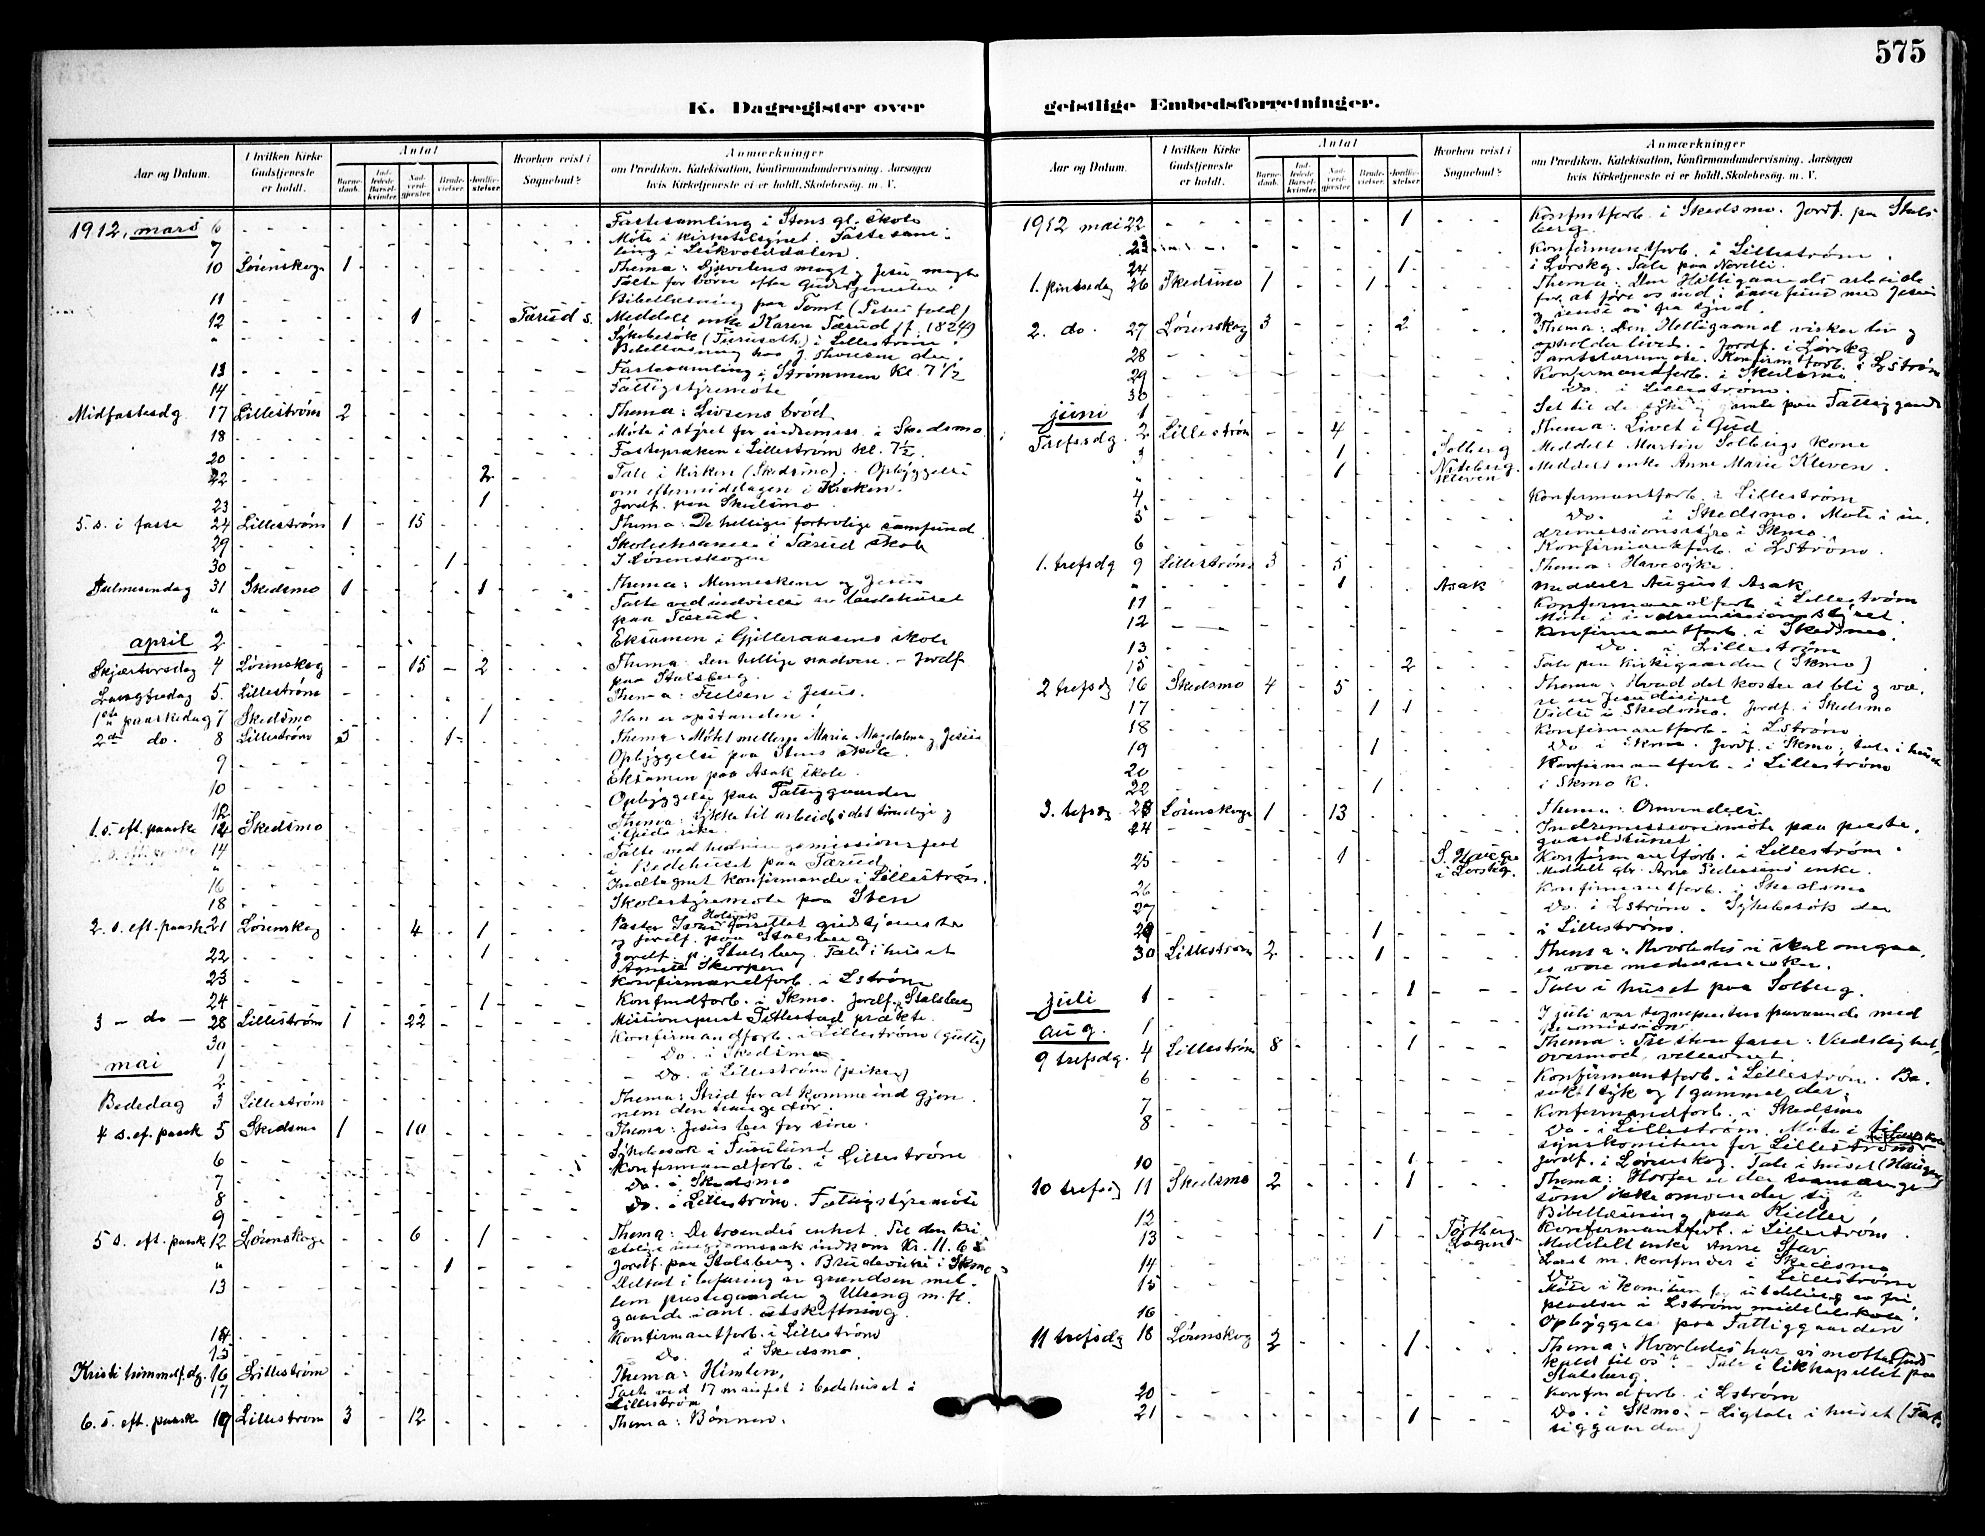 575
K. Dagregister over
geistlige Embedsforretninger.
Aar og Datum.
I hvilken Kirke Gudstjeneste er holdt.
Antal
Barnedaab.
Indledede Barselkvinder.
Nadverdgjester.
Brudevielser.
Jordfæstelser.
Hvorhen reist i Sognebud?
Anmærkninger
om Prædiken, Katekisation, Konfirmandundervisning, Aarsagen
hvis Kirketjeneste ei er holdt, Skolebesøg, m. V.
1912, mars 6 Fastesamling i Stens gl. skole
7 Møte i kirketilsynet. Fastesam-
ling i
10 Lørenskog 1 Thema: Djævelens magt og Jesu magt
Talte for børn efter Gudstjenesten
11 Bibellæsning paa Tomt
12 1 Tærud s. Meddelt enke Karen Tærud f. 1824
" Sykebesøk i Lillestrøm
Bibellæsning hos
13 Fastesamling i Strømmen Kl. 7 1/2
14 Fattigstyremøte
Midfastesdg 17 Lillestrøm 2 Thema: Livsens brød
18 Møte i styret for indremiss. i Skedsmo
20 Fastepræken i Lillestrøm kl. 7 1/2
22 2 Tale i kirken (Skedsmo). Opbyggelse
om eftermiddagen i Kroken.
23 1 Jordf. paa Skedsmo
5. s. i faste 24 Lillestrøm 1 15 Thema: De helliges fortrolige samfund
29 Skoleeksamen i Tærud skole
30 1 I Lørenskogen
Palmesøndag 31 Skedsmo 1 1 Thema: Menneskene og Jesus
" Talte ved indvielse av bedehuset
paa Tærud.
april 2 Eksamen i Gjelleraasens skole
Skjærtorsdag 4 Lørenskog 15 2 Thema: den hellige nadvere. - Jordf.
paa Stalsberg.
Langfredag 5. Lillestrøm Thema: Frelsen i Jesus.
1ste paaskedag 7 Skedsmo 1 Han er opstanden!
2den do. 8 Lillestrøm 5 1 Thema: Møtet mellem Maria Magdalena og Jesus
9 Opbyggelse paa Stens skole
10 Eksamen paa Asak skole.
12 Opbyggelse paa Fattiggaarden
1. s. eft. paaske 14 Skedsmo Thema: Lykke til arbeide i det timelige og
i Guds rike
14 Talte ved
" i Bedehuset paa Tærud
16 Indtegnet konfirmander i Lillestrøm.
18 Skolestyremøte paa Sten
2. s. eft. paaske 21 Lørenskog 4 1 Pastor Holsvik forrettet gudstjeneste
og jordf. paa Stalsberg
22 1 Jordf. p. Stalsberg. Tale i huset
23 Konfirmandforb. i Lstrøm
24 1 Konfmdforb. i Skmo. Jordf. Stalsberg
3 - do - 28 Lillestrøm 1 22 Missionsprest Tettestad prækte.
30 Konfirmandforb. i Lillestrøm (gutter)
mai 1 - Do. i Skedsmo
2 - Do. i Lillestrøm (piker)
Bededag 3 Lillestrøm Thema: Strid for at komme ind gjen-
nem den trange dør.
4 s. ef. paask 5 Skedsmo 1 10 Thema: Jesus ber for sine.
6 Sykebesøk i
Konfirmandforb. i Lillestrøm
7 Do. i Skedsmo
8 Do. i Lillestrøm. Fattigstyremøte
9
5 s. eft. paask 12 Lørenskog 6 1 Thema: De troendes enhet. Til den kri-
stelige indkom Kr. 11.62
" 1 Jordf. paa Stalsberg. Brudevielse i Skmo
13 Deltat i befaring av grændsen mel-
lem prestegaarden og m. fl.
gaarde i ant. utskiftning
14 Konfirmantforb. i Lillestrøm
15 Do. i Skedsmo.
Kristi himmelf. dg. 16 Lillestrøm Thema: Himlen.
17 Talte ved 17 maifest i bedehuset i
Lillestrøm
6. s. eft. paaske 19 Lillestrøm 3 12 Thema: Bønnen.
Aar og Datum.
I hvilken Kirke Gudstjeneste er holdt.
Antal
Barnedaab.
Indledede Barselkvinder.
Nadverdgjester.
Brudevielser.
Jordfæstelser.
Hvorhen reist i Sognebud?
Anmærkninger
om Prædiken, Katekisation, Konfirmandundervisning, Aarsagen
hvis Kirketjeneste ei er holdt, Skolebesøg, m. V.
1912 mai 22 1 Konfmtforb. i Skedsmo. Jordf. paa Stals
berg.
23 Konfirmantforb. i Lillestrøm.
24 1 i Lørskg. Tale paa
1. pintsedag 26 Skedsmo 1 1 Thema: Den Helligaands arbeide
for at føre os ind i samfund med Jesus
og rense os fra synd.
2. do. 27 Lørenskog 3 2 Thema: Den Helligaand virker liv og
opholder livet. - Jordf. i Lørskg
28 Konfirmtforb. i Lstrøm
29 Konfirmandforb. i Skedsmo
30 Do. i Lillestrøm.
juni 1 Set til de syke og gamle paa Fattiggaard
Trefsdg. 2 Lillestrøm 4 Thema: Livet i Gud
3 1 Solberg Meddelt Martin Solbergs kone
" 1 Nitteberg Kleven Meddelt enke Anne Marie Kleven.
4 Konfirmantforb. i Lillestrøm
5 Do. i Skedsmo. Møte i in-
dremissionsstyre i Skmo
6 Konfirmantforb. i Lstrøm.
1. trefsdg 9 Lillestrøm 3 5 Thema: Havesyke.
" 1 Asak Meddelt August Asak
11 Konfirmandforb. i Lillestrøm
12 Møte i indremissionsstyret.
Konfirmantforb. i Skedsmo.
13 Do. i Lillestrøm
15 2 Tale paa kirkegaarden (Skmo)
2 trefsdg 16 Skedsmo 4 5 Thema: Hvad det koster at bli og væ-
re en Jesu discipel
17 1 1 Vielse i Skedsmo. Jordf. i Skedsmo
18 Konfirmantforb. i Lstrøm.
19 1 Do i Skmo. Jordf. i Skmo, tale i huset
20 Konfirmantforb. i Lillestrøm
22 1 i Skmo K.
3. trefsdg 23 Lørenskog 1 13 Thema: Omvendelse.
24 Indremissionsmøte paa preste-
gaardstunet
25 1 S. Hauger i Lørskg. Konfirmantforb. i Lillestrøm.
Meddelt gbr. Arne Pedersens enke.
26 Konfirmantforb. i Skedsmo
27 Do. i Lstrøm. Sykebesøk der
29 1 i Lillestrøm.
30 Lillestrøm 2 1 Thema: Hvorledes vi skal omgaa-
es vore medmennesker.
juli 1 1 Tale i huset paa Solberg.
I juli var sognepresten fraværende med
permission.
aug. 1
9 trefsdg. 4 Lillestrøm 8 1 Thema: Tre store farer: Verdslighet,
overmod, vellevnet.
6 Konfirmantforb. i Lillestrøm. Be-
søk 1 syk og 1 gammel der.
7 Konfirmandforb. i Skedsmo
8 Do. i Lillestrøm. Møte i
synskomiteen for Lillestrøm
10 1 Jordf. i Lørenskog. Tale i huset (Haugen)
10 trefsdg 11 Skedsmo 2 1 Thema: Hvorfor er der saa mange
som ikke omvender sig?
12 Bibellæsning paa Kjeller
13 1 Konfirmantforb. i Lillestrøm.
Meddelt enke Anne Stav.
14 Læst m. konfmder i Skedsmo
15 Do. - Lillestrøm
Møte i komiteen for utdeling av fri-
pladser i Lstrøm middelskole.
16 Opbyggelse paa Fattiggaarden
11 trefsdg 18 Lørenskog 2 1 Thema: Hvorledes har vi mottat Guds
kald til os? - Tale i likkapellet paa
Stalsberg.
20 Konfmdforb. i Lstrøm
21 1 Do. i Skmo. - Ligtale i huset (Fat-
tiggaarden)